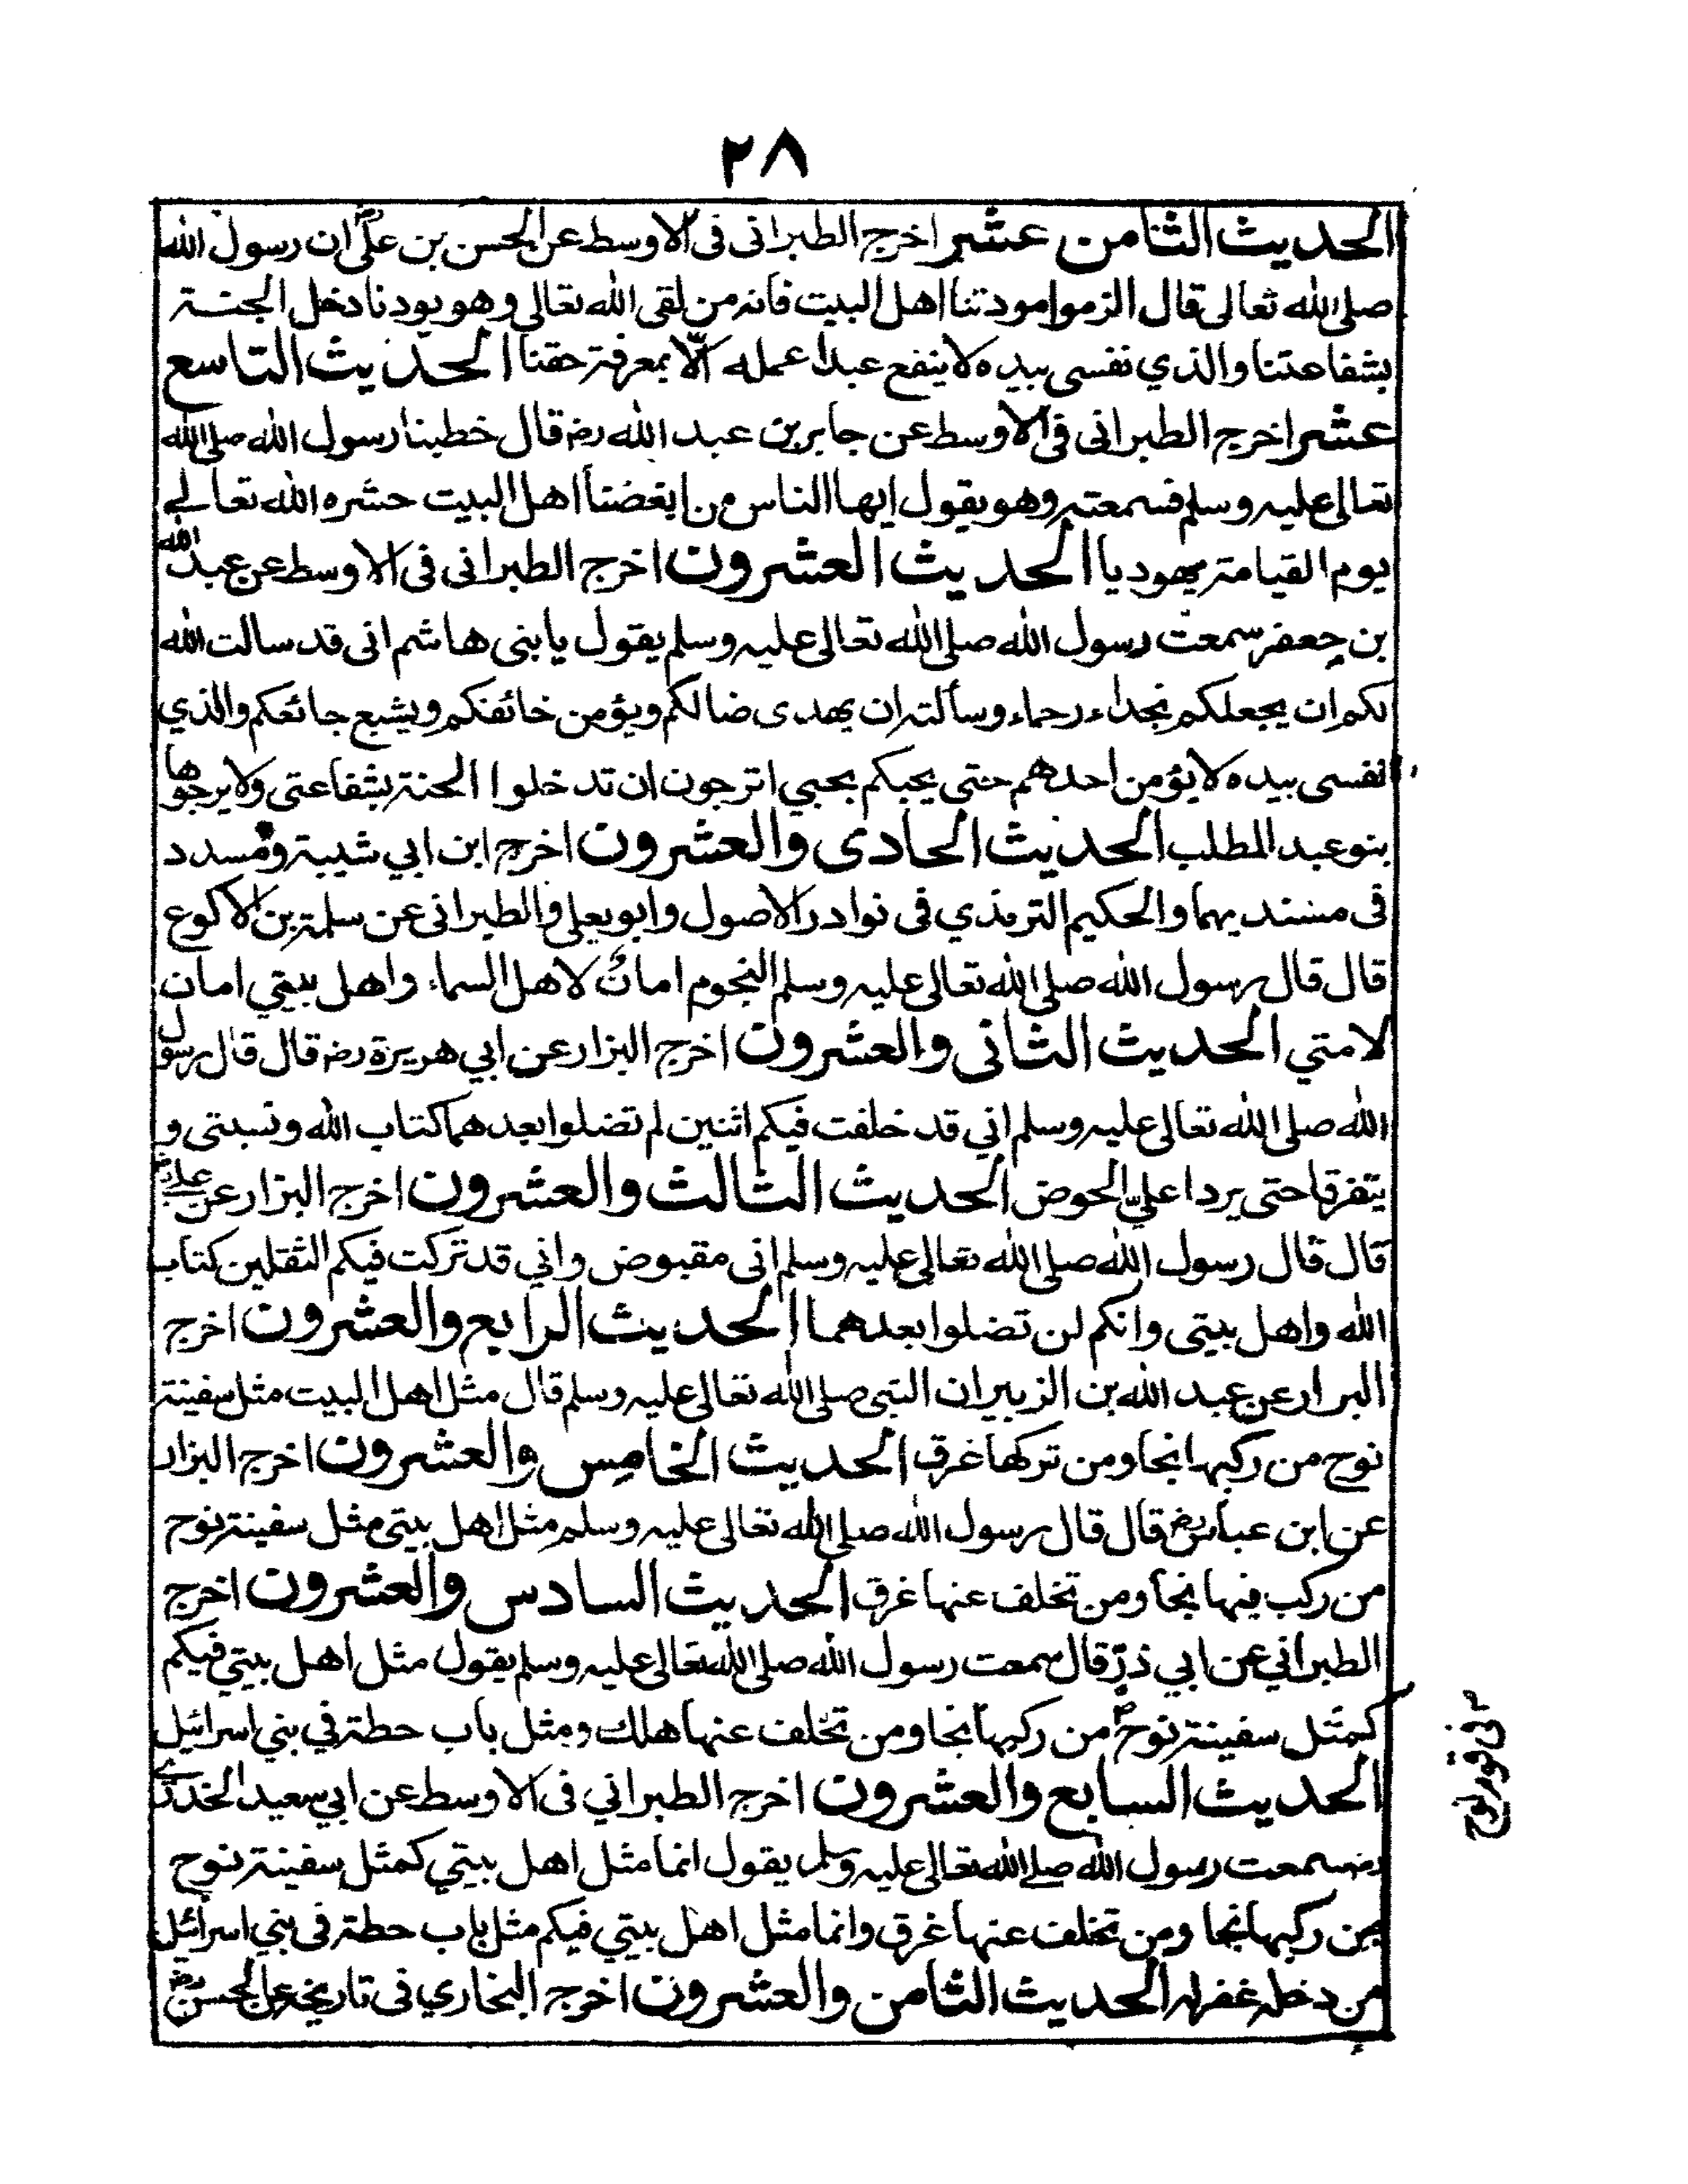 ٢٨
الحديث الثامن عشر اخرج الطبرانى فى الاوسط عن الحسن بن علیؓ ان رسول الله
صلى الله تعالى قال الزموا مودتنا اهل البيت فانه من لقى الله تعالى وهو يودنا دخل الجنة
بشفاعتنا والذي نفسى بيده لا ينفع عبدا عمله الّا بمعرفة حقنا الحديث التاسع
عشر اخرج الطبرانى فى الاوسط عن جابر بن عبد الله رضـ قال خطبنا رسول الله صلى الله
تعالى عليه وسلم فسمعته وهو يقول ايها الناس من ابغضنا اهل البيت حشره الله تعالے
يوم القيامة يهوديا الحديث العشرون اخرج الطبرانى فى الاوسط عن عبد الله
بن جعفر سمعت رسول الله صلى الله تعالى عليه وسلم يقول يا بنى هاشم انى قد سالت الله
لكم ان يجعلكم نجداء رحماء وسألته ان يهدى ضالكم ويؤمن خائفكم ويشبع جائعكم والذي
نفسى بيده لا يؤمن احدهم حتى يحبكم بحبي اترجون ان تدخلوا الجنة بشفاعتى ولا يرجوها
بنو عبد المطلب الحديث الحادى والعشرون اخرج ابن ابي شيبة ومسدد
فى مسنديهما والحكيم الترمذي فى نوادر الاصول وابو يعلى والطبرانى عن سلمة بن الاكوع
قال قال رسول الله صلى الله تعالى عليه وسلم النجوم امانٌ لاهل السماء واهل بيتي امان
لامتي الحديث الثانى والعشرون اخرج البزار عن ابي هريرة رضـ قال قال رسول
الله صلى الله تعالى عليه وسلم اني قد خلفت فيكم اثنين لم تضلوا بعدهما كتاب الله ونسبتى و
يتفرقا حتى يردا عليّ الحوض الحديث الثالث والعشرون اخرج البزار عن علیؓ
قال قال رسول الله صلى الله تعالى عليه وسلم انى مقبوض واني قد تركت فيكم الثقلين كتاب
الله واهل بيتى وانكم لن تضلوا بعدهما الحديث الرابع والعشرون اخرج
البرار عن عبد الله بن الزبير ان النبى صلى الله تعالى عليه وسلم قال مثل اهل البيت مثل سفينة
نوح من ركبها نجا ومن تركها غرق الحديث الخامس والعشرون اخرج البزار
عن ابن عباس رضـ قال قال رسول الله صلى الله تعالى عليه وسلم مثل اهل بيتى مثل سفينة نوح
من ركب فيها نجا ومن تخلف عنها غرق الحديث السادس والعشرون اخرج
الطبراني عن ابي ذرّ قال سمعت رسول الله صلى الله تعالى عليه وسلم يقول مثل اهل بيتي فيكم
كمثل سفينة نوحؑ من ركبها نجا ومن تخلف عنها هلك ومثل باب حطة في بني اسرائيل
الحديث السابع والعشرون اخرج الطبراني فى الاوسط عن ابي سعيد الخدرے
رضـ سمعت رسول الله صلے الله تعالى عليه وسلم يقول انما مثل اهل بيتي كمثل سفينة نوح
من ركبها نجا ومن تخلف عنها غرق وانما مثل اهل بيتي فيكم مثل باب حطة فى بني اسرائيل
من دخله غفر له الحديث الثامن والعشرون اخرج البخاري فى تاريخه عن الحسن رضـ